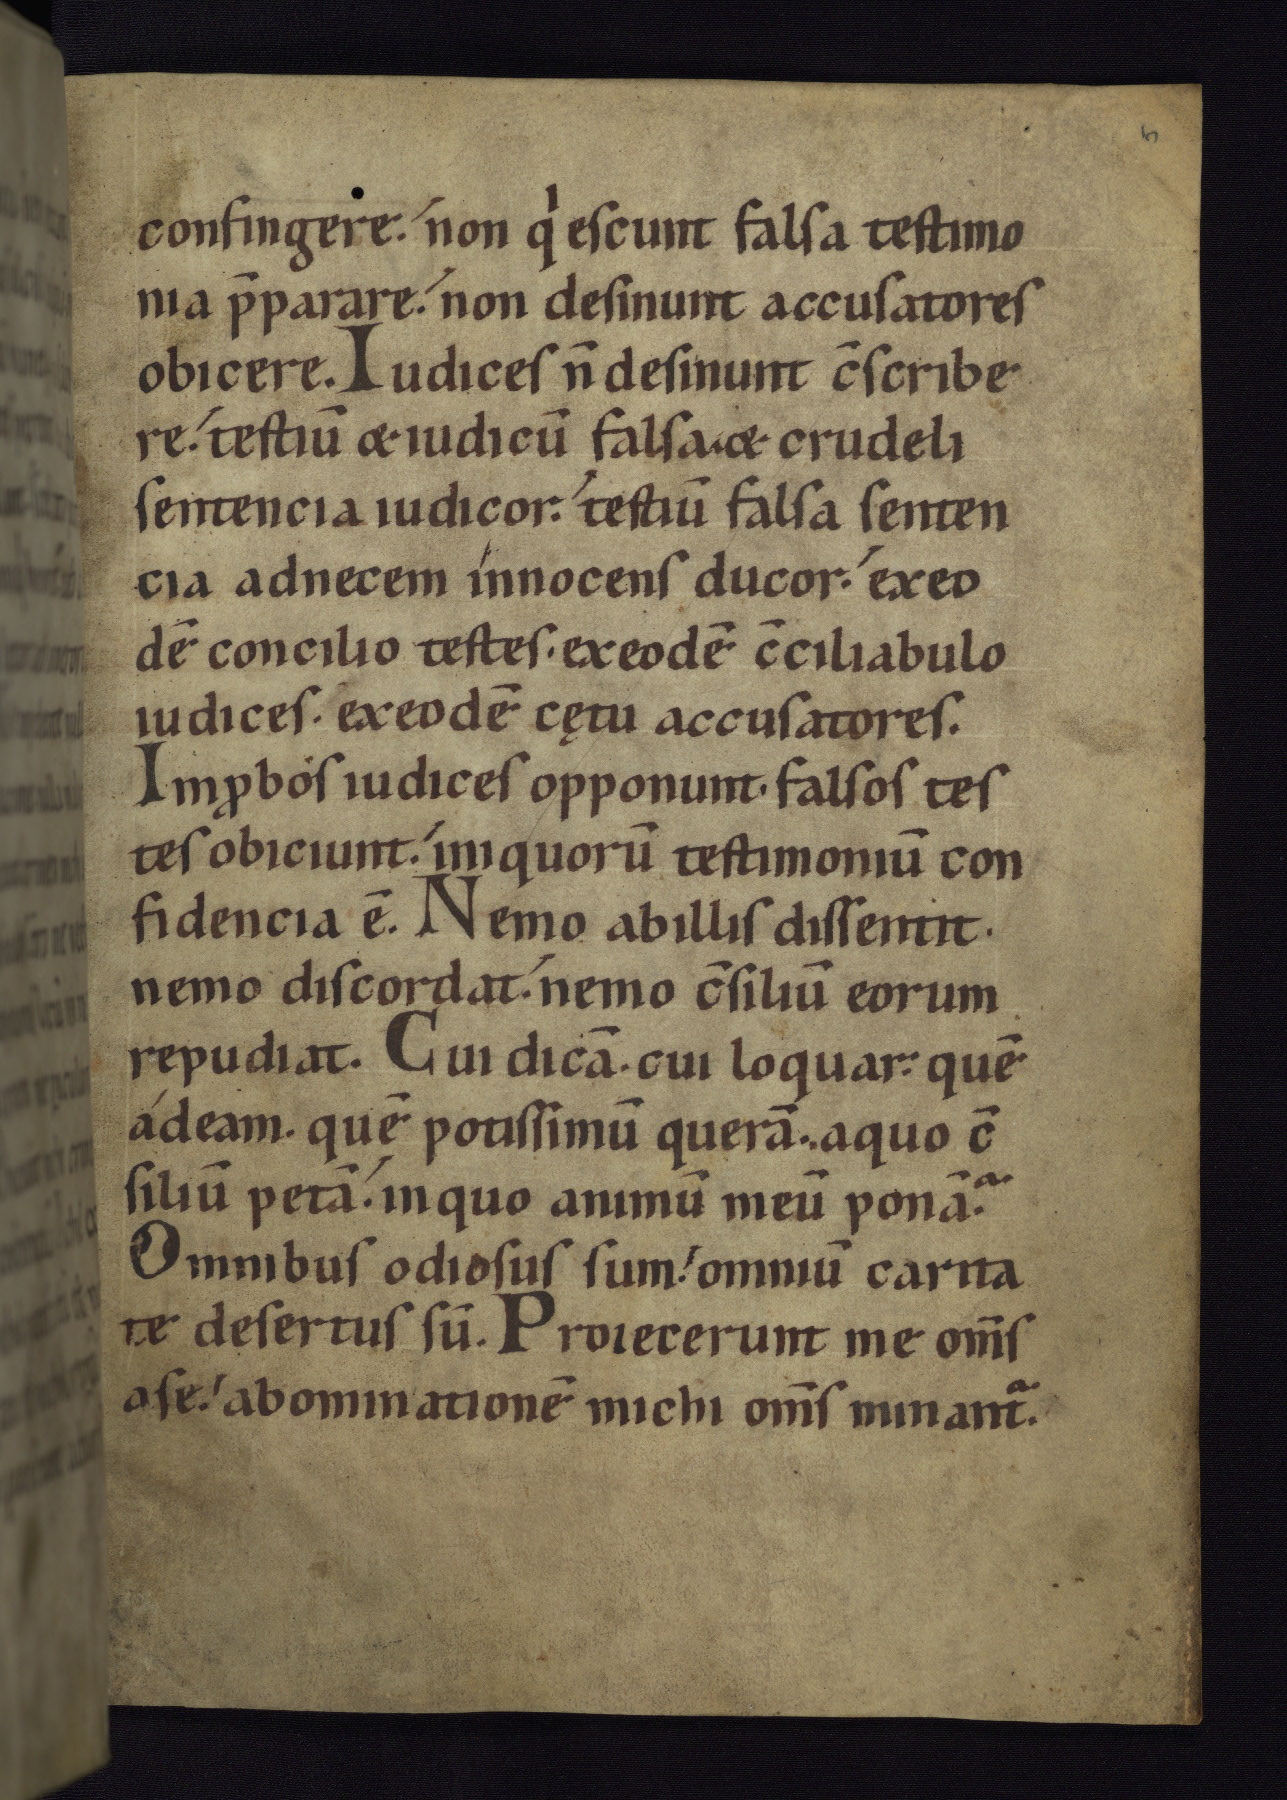 confingere. non qͥescunt falsa testimo
nia p̄parare. non desinunt accusatores
obicere. Iudices n̄ desinunt c̄scribe
re. testiū & iudicū falsa. & crudeli
sentencia iudicor. testiū falsa senten
cia adnecem innocens ducor. exeo
dē concilio testes. exeodē c̄ciliabulo
iudices. exeodē cętu accusatores.
Imꝓbos iudices opponunt. falsos tes
tes obiciunt. iniquorū testimoniū con
fidencia ē. Nemo abillis dissentit.
nemo discordat. nemo c̄siliū eorum
repudiat. Cui dicā. cui loquar. quē
ádeam. quē potissimū querā. aquo c̄
siliū petā. inquo animū meū ponā.
Omnibus odiosus sum. omniū carita
te desertus sū. Proiecerunt me om̄s
ase. abominationē michi om̄s minant᷑.